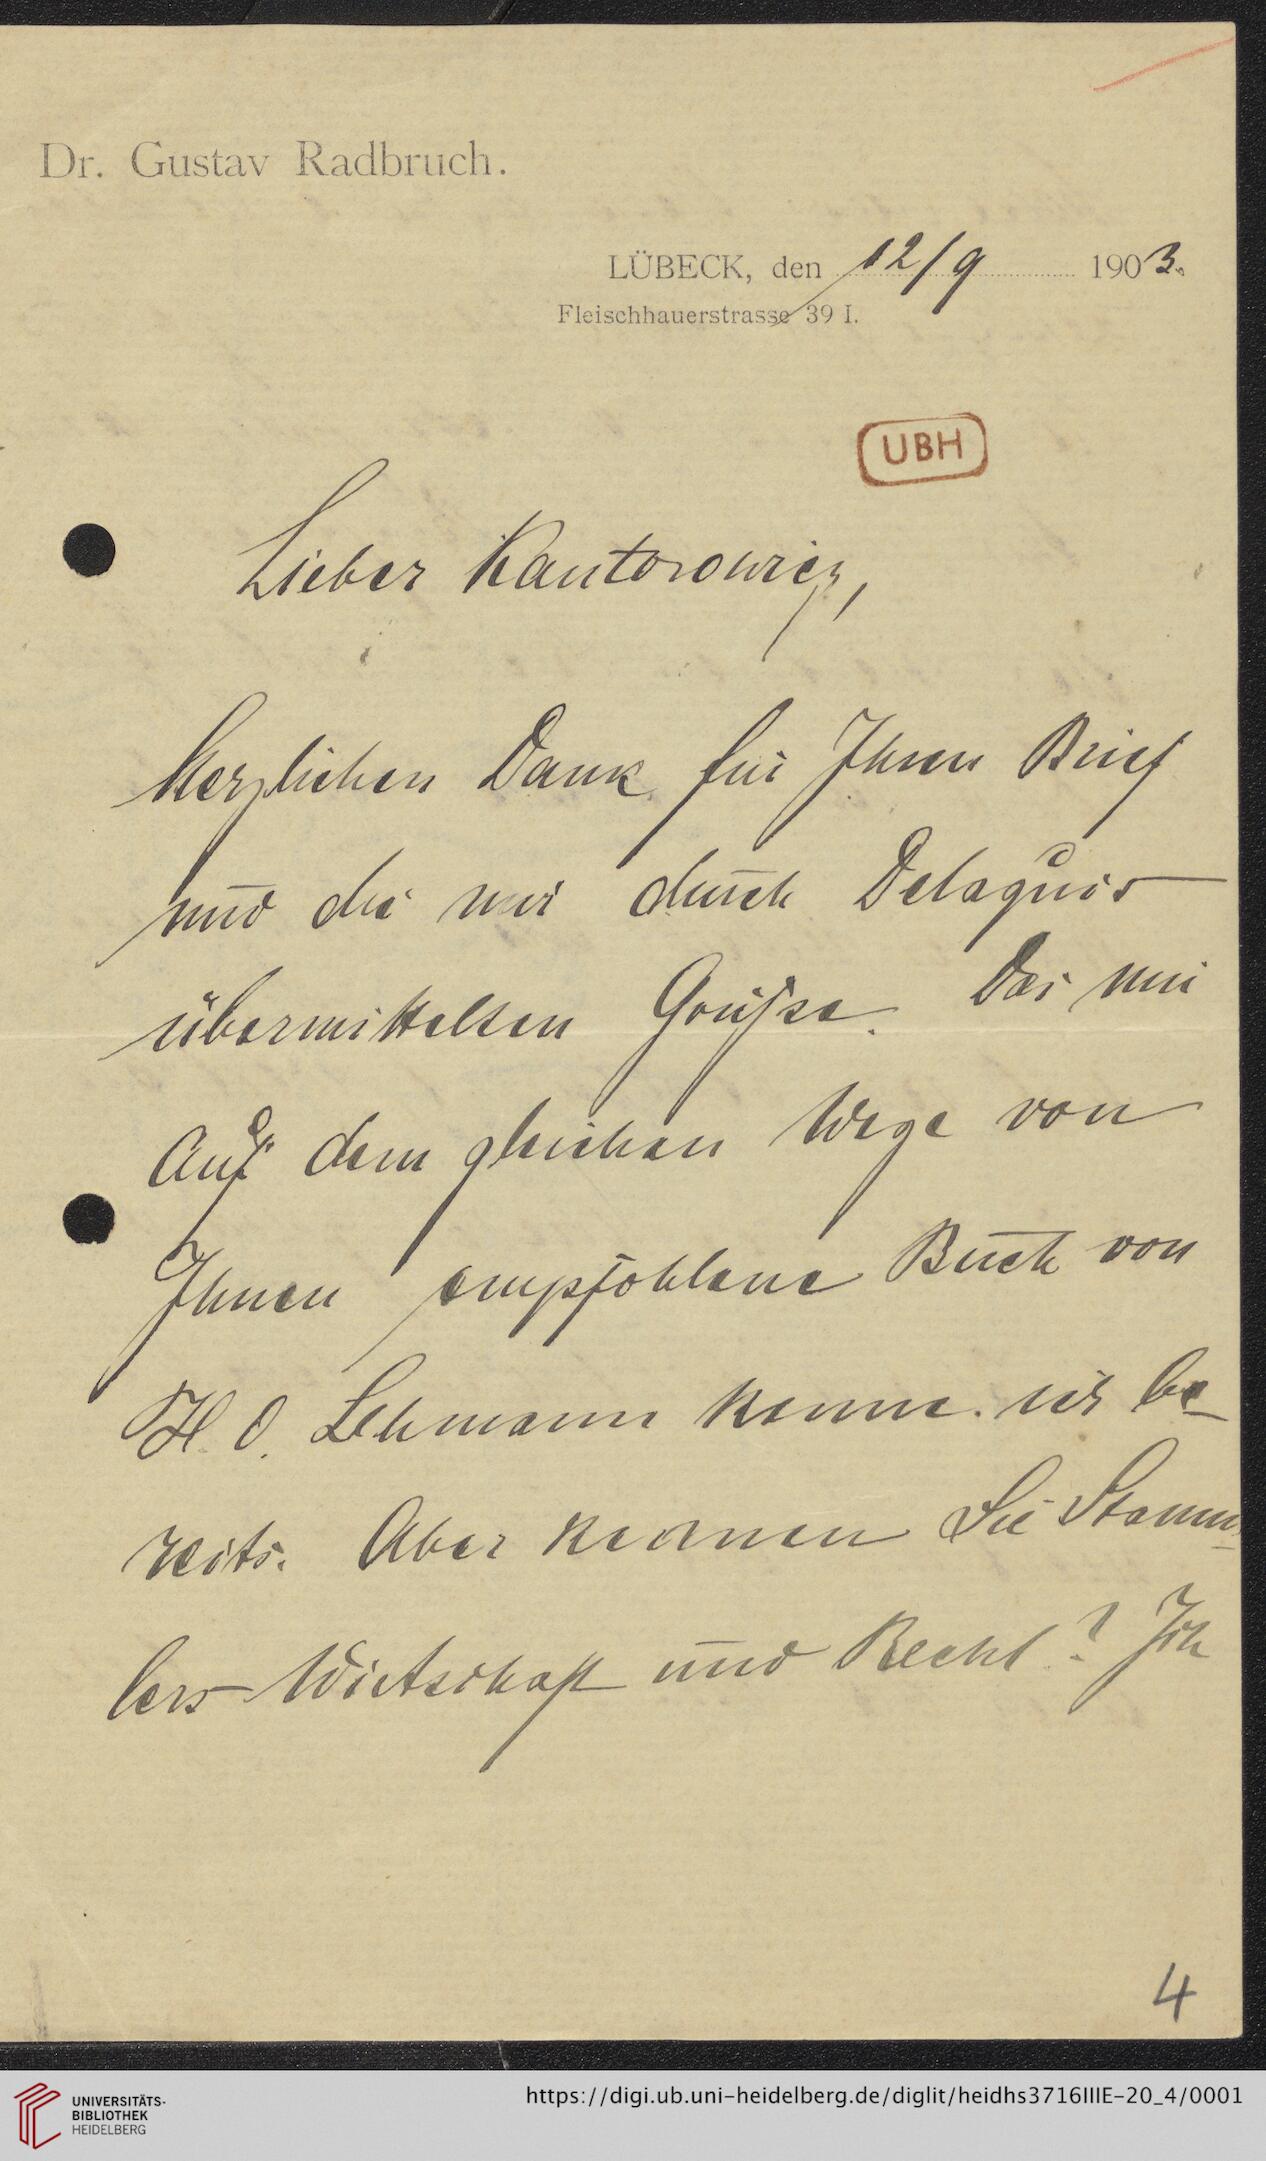 Dr. Gustav Radbruch.
LÜBECK, den 12/9 1903.
Fleischhauerstrasse 39 I.
UBH
Lieber Kantorowicz,
herzlichen Dank für Ihren Brief
und die mir durch Delaquis
übermittelten Grüße. Das mir
auf dem gleichen Wege von
Ihnen empfohlene Buch von
H. O. Lehmann kenne ich be-
reits. Aber kennen Sie Stamm-
lers Wirtschaft und Recht? Ich
4
UNIVERSITÄTS-
BIBLIOTHEK
HEIDELBERG
https://digi.ub.uni-heidelberg.de/diglit/heidhs3716IIIE-20_4/0001